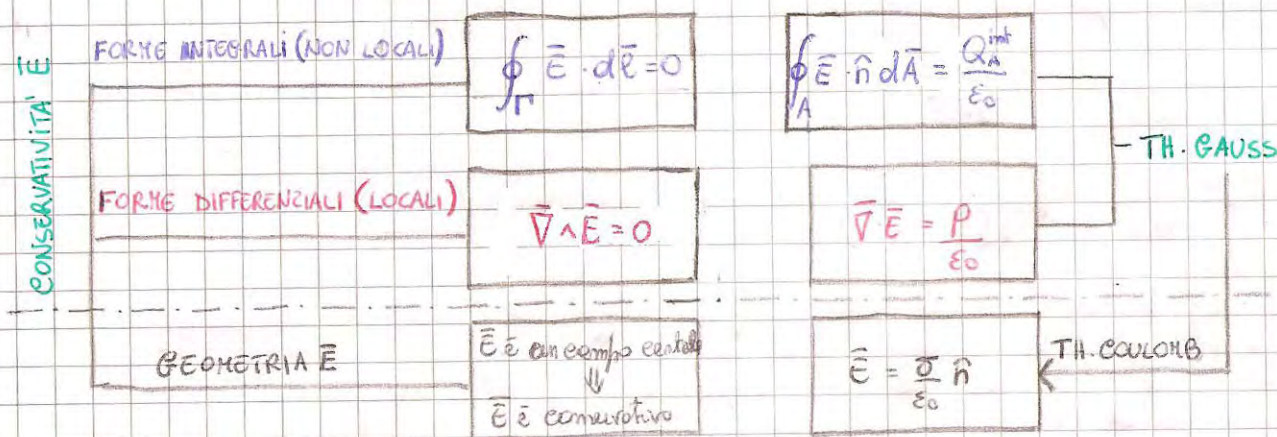 CONSERVATIVITA' Ē
FORME INTEGRALI (NON LOCALI)
∮_Γ Ē · dl̄ = 0
∮_A Ē · n̂ dĀ = Q_A^int / ε₀
TH. GAUSS
FORME DIFFERENZIALI (LOCALI)
∇̄ ∧ Ē = 0
∇̄ · Ē = ρ / ε₀
GEOMETRIA Ē
Ē è un campo centrale
⇓
Ē è conservativo
Ē = σ / ε₀ n̂
TH. COULOMB